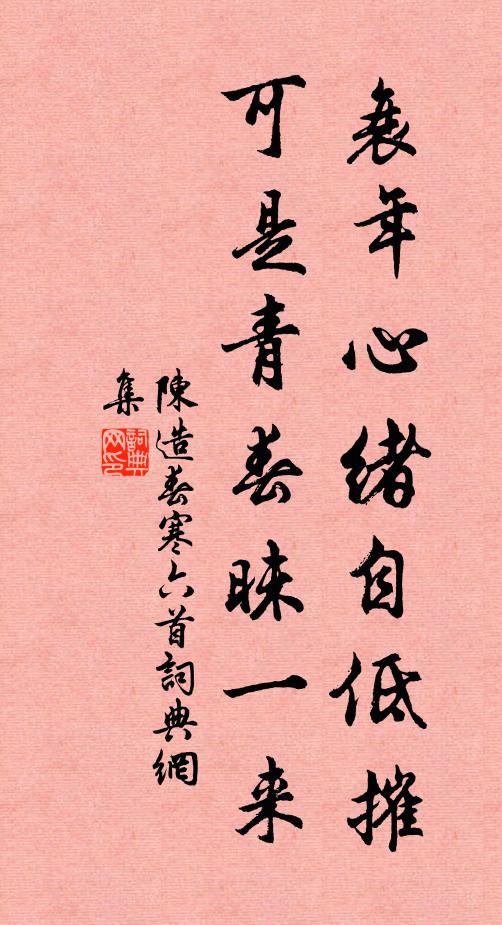 衰年心緒自低摧
可是青春昧一来
陳造春寒六首詞典網
集
詞典
网印